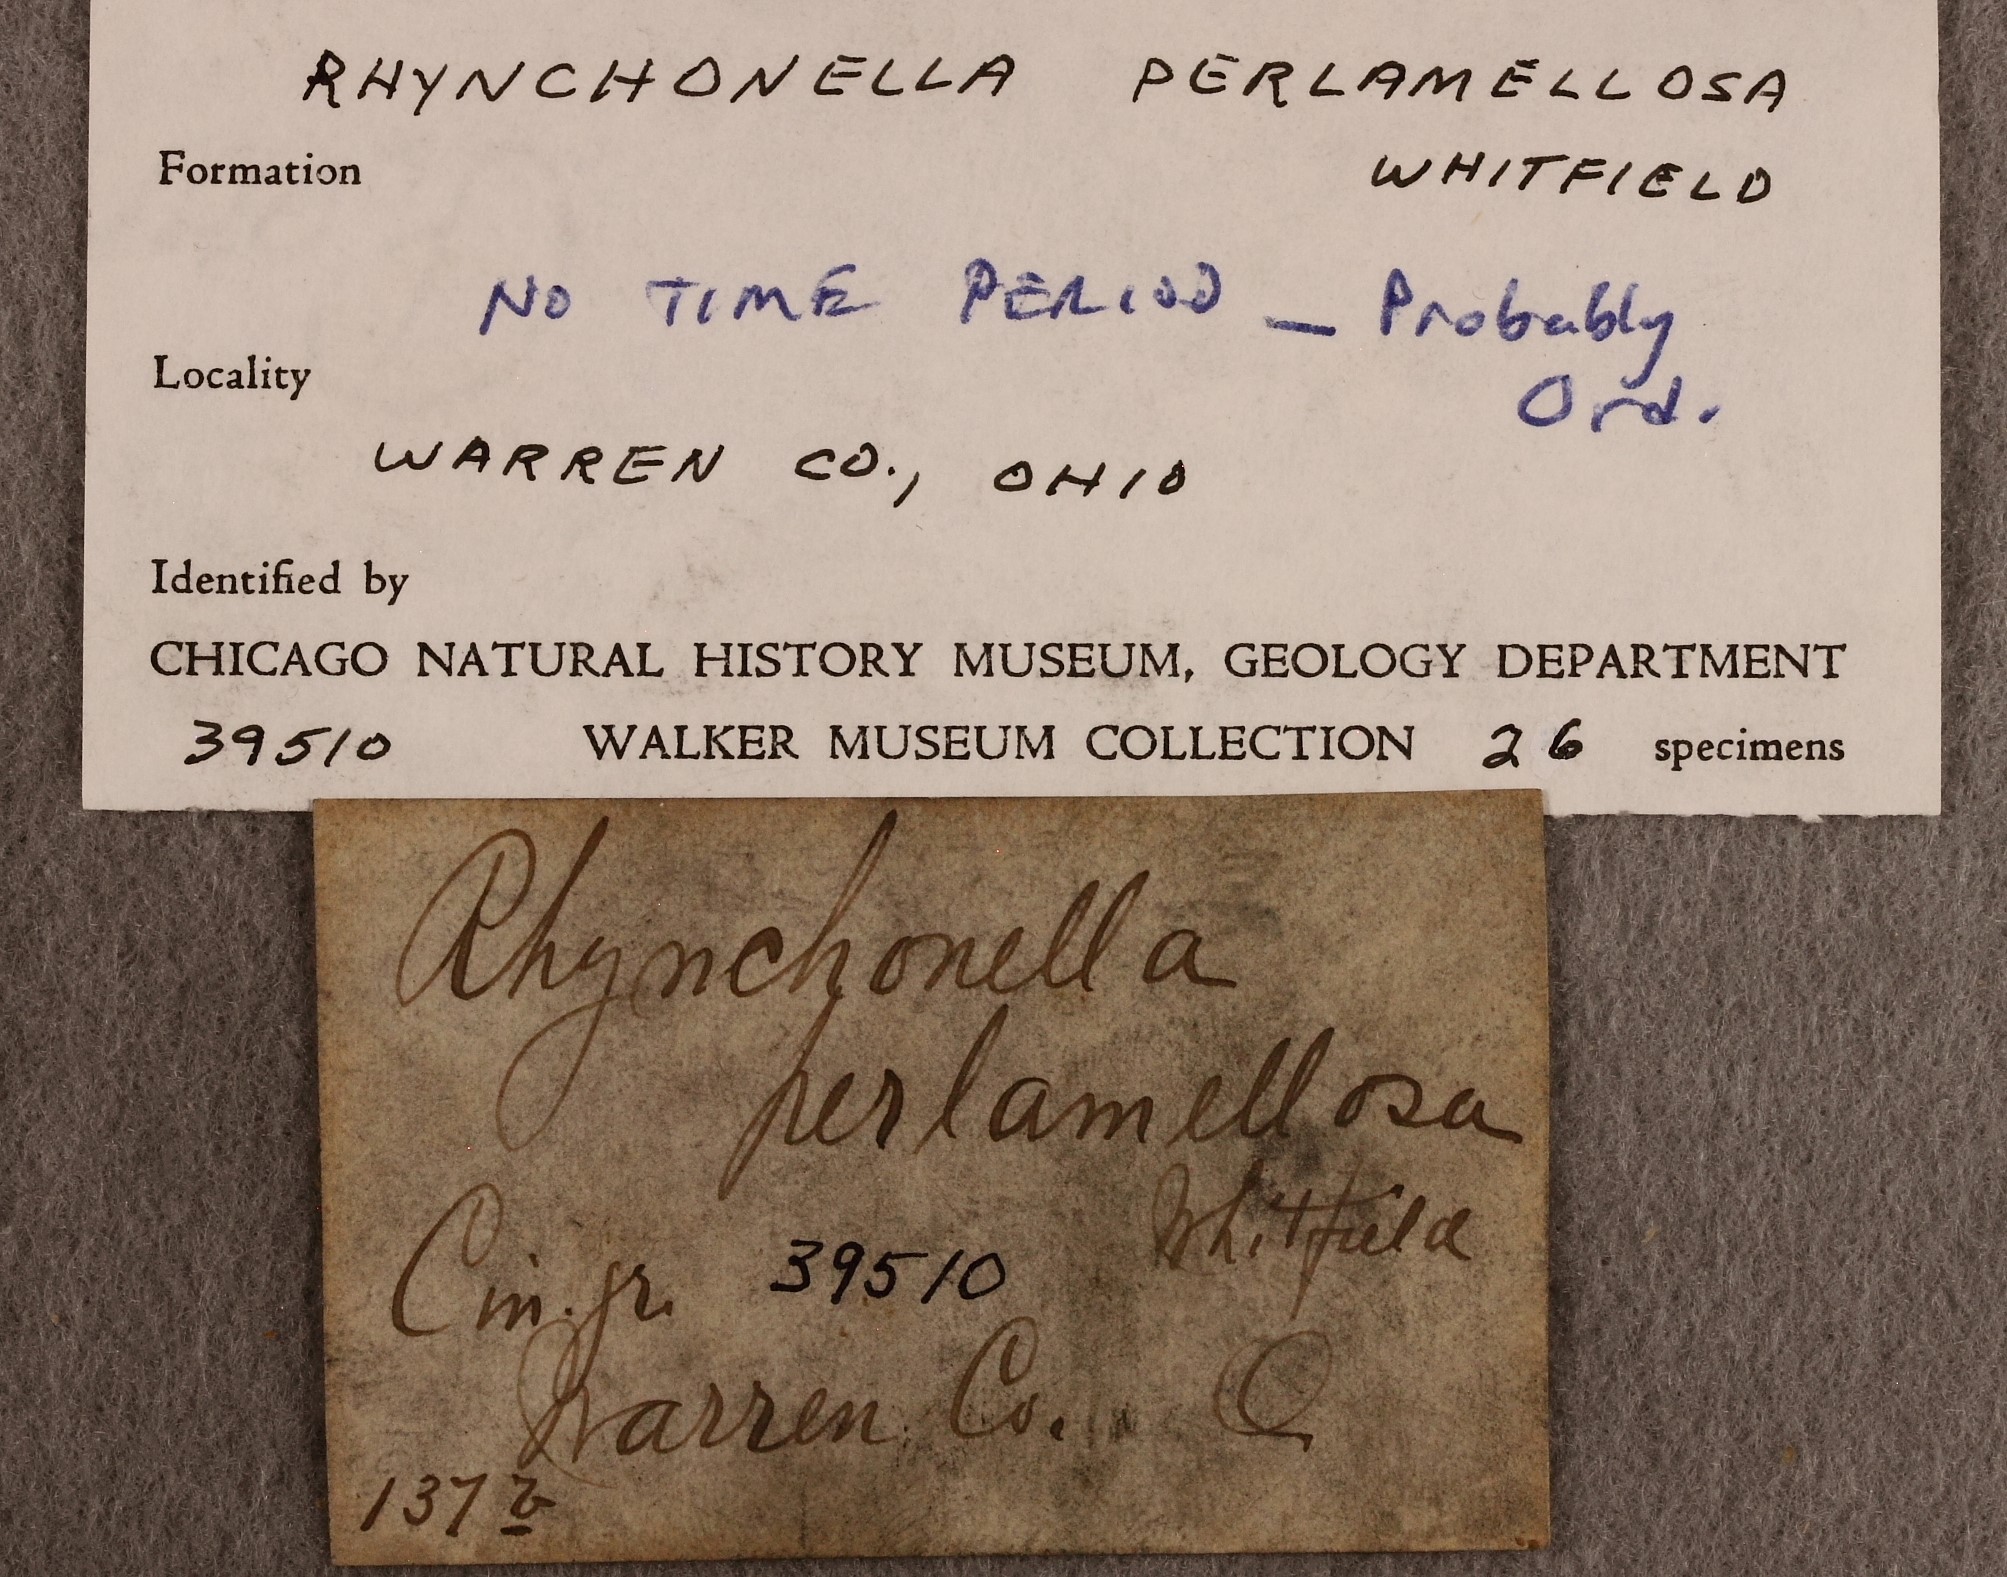 RHYNCHONELLA PERLAMELLOSA
Formation WHITFIELD
NO TIME PERIOD - Probably
Ord.
Locality
WARREN CO., OHIO
Identified by
CHICAGO NATURAL HISTORY MUSEUM, GEOLOGY DEPARTMENT
39510 WALKER MUSEUM COLLECTION 26 specimens
Rhynchonella
perlamellosa
Whitfield
Cin. gr. 39510
Warren Co. O
137